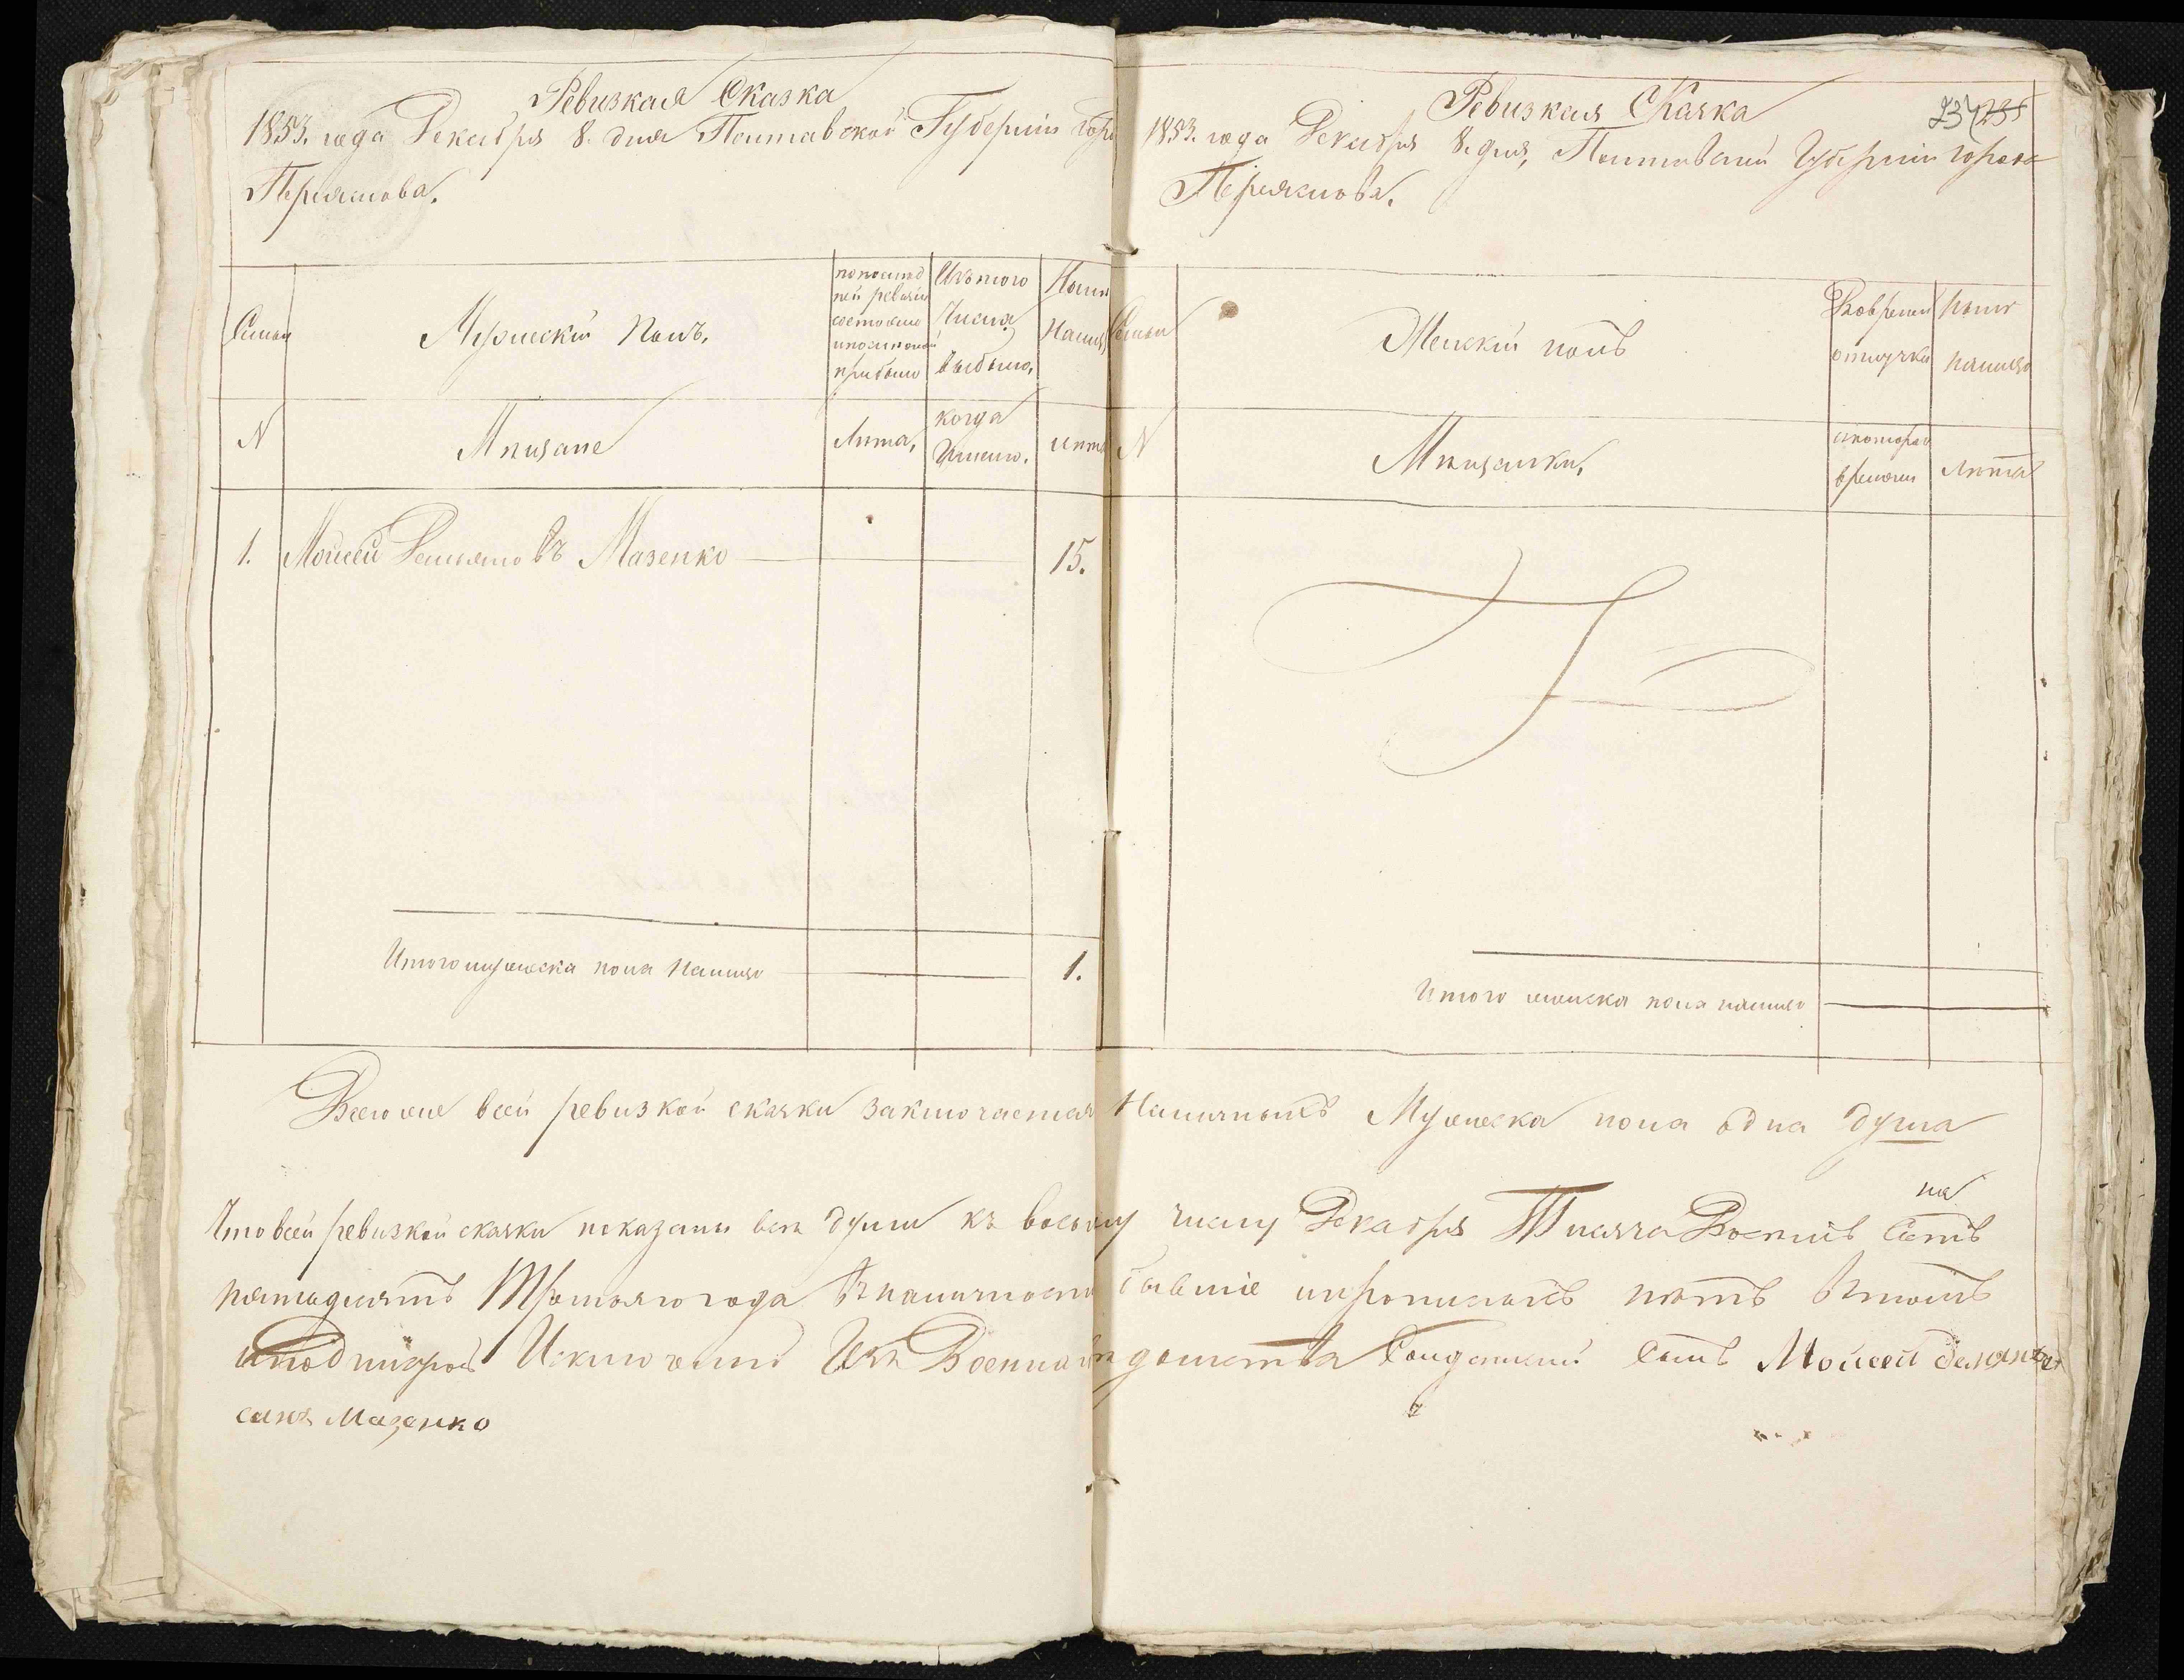 Ревизкая Сказка
1853. года Декабря 8. дня Полтавской Губернiи горо
Переяслова.
Семьи
Мужескiй полъ.
по послед
ней ревизiи
состояло
и после оной
прибыло
Изъ того
Числа
выбыло.
Ныне
Налицо
N
Мещане
Лета,
когда
Именно.
лета
1. Моисей Демьяновъ Мазенко 15.
Итого мужеска пола налицо 1.
Ревизкая Сказка
234 235
1853. года Декабря 8. дня, Полтавской Губернiи города
Переяслова.
Семьи
Женскiй полъ
Во временной
отлучке
Ныне
налицо
N
Мещанки,
с котораго
времени
Лета
Итого женска пола налицо
Всего же в сей ревизкой сказки заключается Наличныхъ Мужеска пола одна душа
Что в сей ревизкой сказки показаны все души къ восьмому числу Декабря Тысяча Восемь Сотъ
пятьдесятъ Третьяго года въ наличности бывшiе и прописныхъ нетъ в томъ
и подписуюсь Исключеный Изъ Военнаго Ведомства Солдатский Сынъ Моисей Демьяновъ
сынъ Мазенко